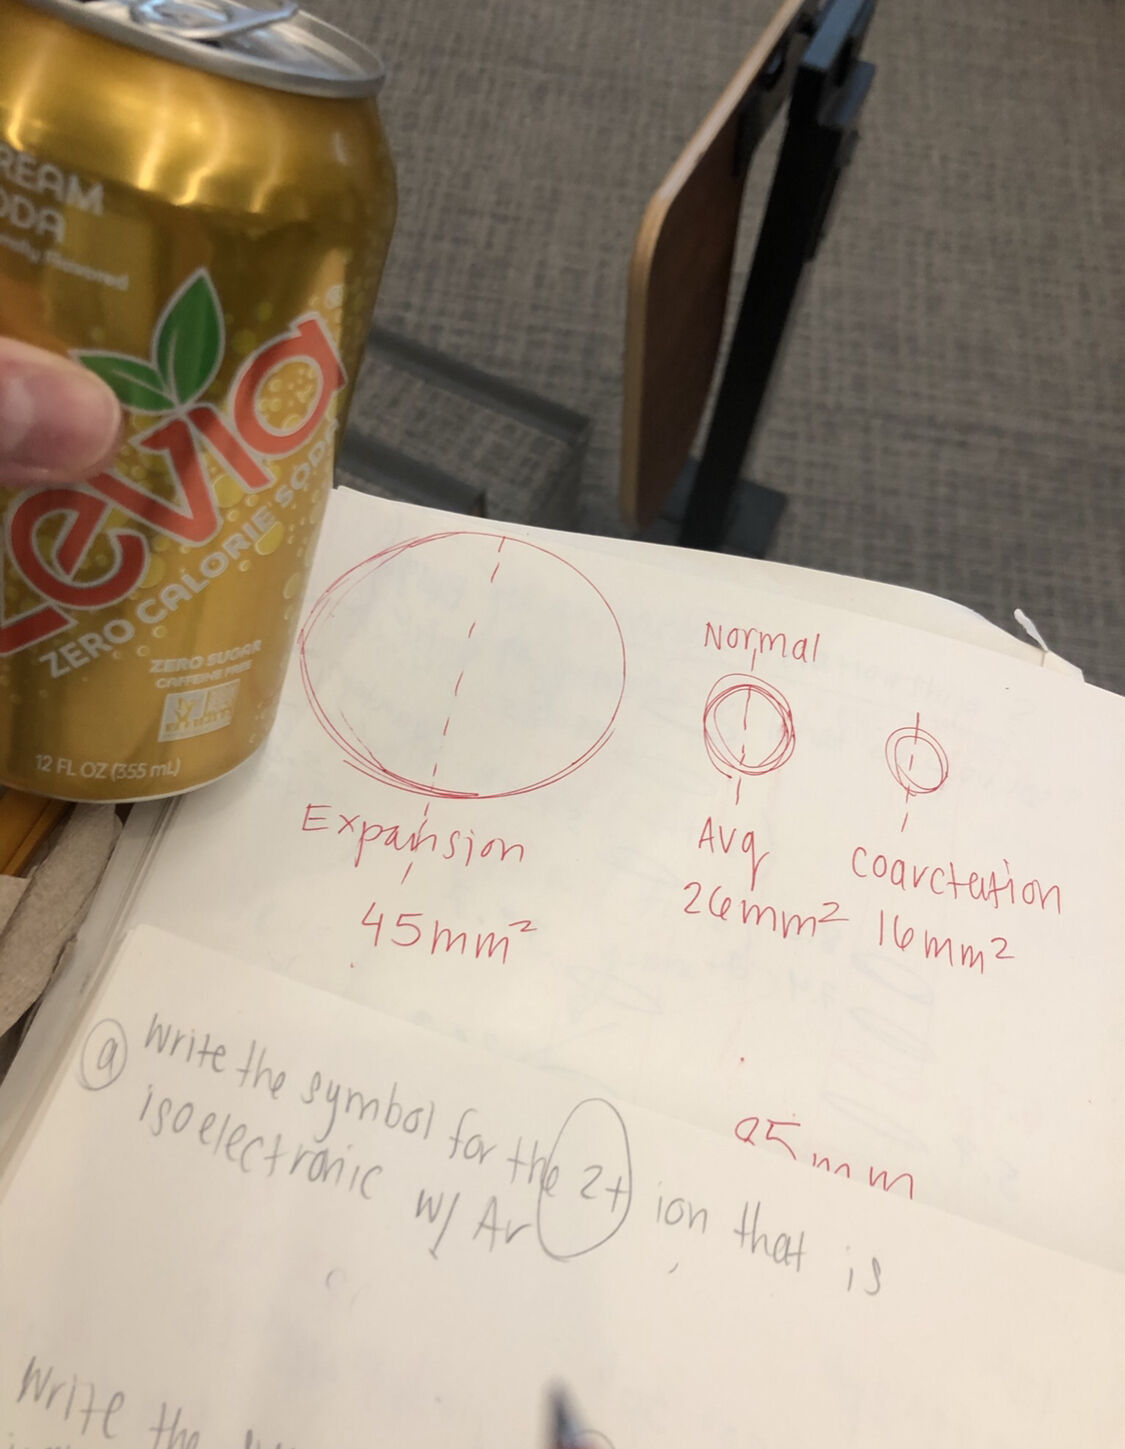 REAM
ODA
Zevia
ZERO CALORIE SODA
ZERO SUGAR
CAFFEINE FREE
12 FL OZ (355 mL)
Normal
Expansion
45mm²
Avg
26mm²
coarctation
16mm²
95mm
a Write the symbol for the 2+ ion that is
isoelectronic w/ Ar
Write the